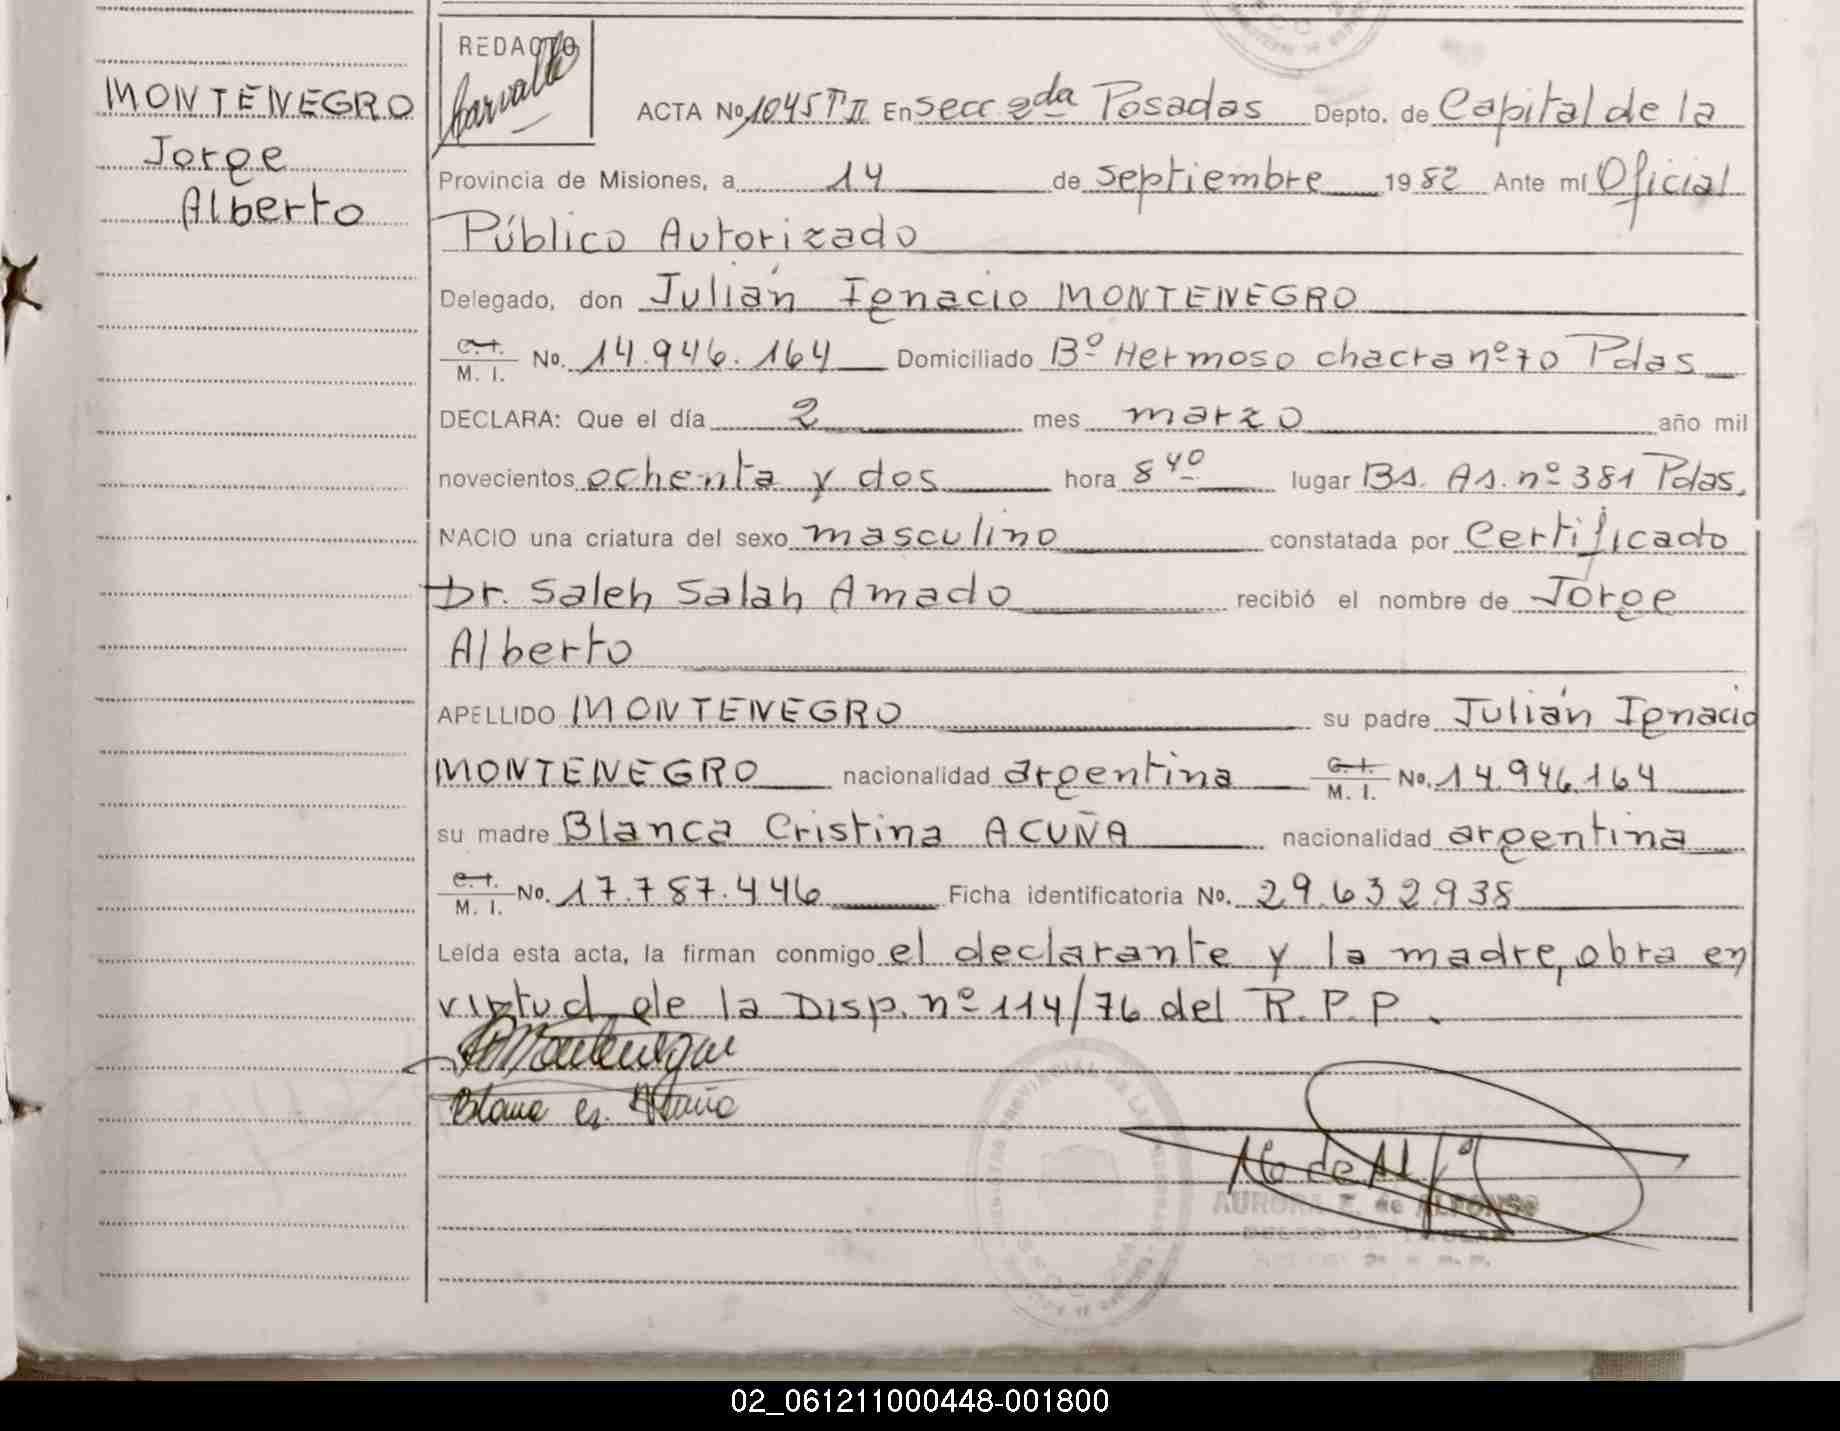 MONTENEGRO
Jorge
Alberto
REDACTO
Carvallo
ACTA No 1045 T II En Secc 2da Posadas Depto. de Capital de la
Provincia de Misiones, a 14 de septiembre 1982 Ante mí Oficial
Público Autorizado
Delegado, don Julián Ignacio MONTENEGRO
C.I. M. I. No. 14.946.164 Domiciliado Bº Hermoso chacra nº 70 Pdas
DECLARA: Que el día 2 mes marzo año mil
novecientos ochenta y dos hora 8 40 lugar Bs. As. nº 381 Pdas.
NACIO una criatura del sexo masculino constatada por Certificado
Dr. Saleh Salah Amado recibió el nombre de Jorge
Alberto
APELLIDO MONTENEGRO su padre Julián Ignacio
MONTENEGRO nacionalidad argentina C.I. M. I. No. 14.946.164
su madre Blanca Cristina ACUÑA nacionalidad argentina
C.I. M. I. No. 17.787.446 Ficha identificatoria No. 29.632.938
Leída esta acta, la firman conmigo el declarante y la madre, obra en
virtud de la Disp. nº 114/76 del R.P.P.
Montenegro
Blanca Cs. Acuña
16 de 11
AURORA E. de ALFONSO
DELEGADA TITULAR
02_061211000448-001800